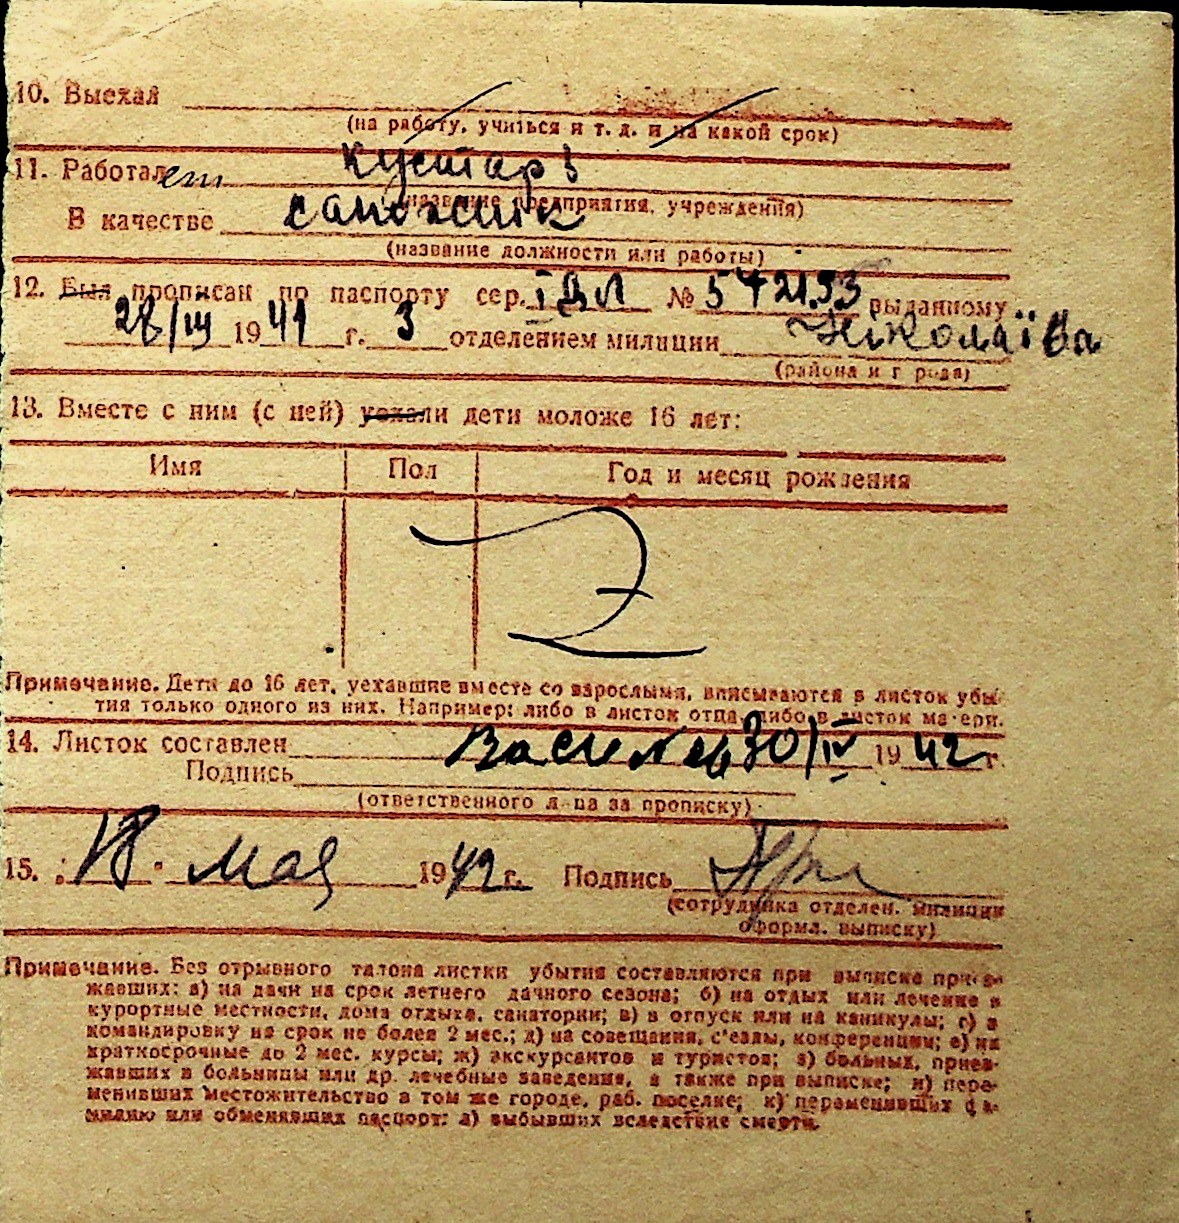 10. Выехал
(на работу, учиться и т. д. и на какой срок)
11. Работает кустарь
(название предприятия, учреждения)
В качестве сапожник
(название должности или работы)
12. Был прописан по паспорту сер. № выданному
28/III 1941 г. 3 отделением милиции Ніколаїва
(района и города)
13. Вместе с ним (с ней) уехали дети моложе 16 лет:
Имя Пол Год и месяц рождения
Примечание. Дети до 16 лет, уехавшие вместе со взрослыми, вписываются в листок убы-
тия только одного из них. Например: либо в листок отца, либо в листок матери.
14. Листок составлен 30/IV 1942 г.
Подпись
(ответственного лица за прописку)
15. „18" мая 1942 г. Подпись
(сотрудника отделен. милиции
оформл. выписку)
Примечание. Без отрывного талона листки убытия составляются при выписке приез-
жавших: а) на дачи на срок летнего дачного сезона; б) на отдых или лечение в
курортные местности, дома отдыха, санатории; в) в отпуск или на каникулы; г) в
командировку на срок не более 2 мес.; д) на совещания, с'езды, конференции; е) на
краткосрочные до 2 мес. курсы; ж) экскурсантов и туристов; з) больных, приез-
жавших в больницы или др. лечебные заведения, а также при выписке; и) пере-
менивших местожительство в том же городе, раб. поселке; к) переменивших фа-
милию или обменявших паспорт; л) выбывших вследствие смерти.